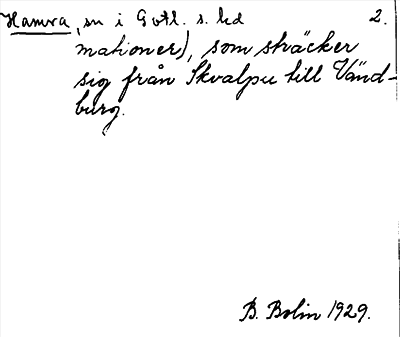 Hamra, sn i Gotl. s. hd 2.
mationer), som sträcker
sig från Skvalpu till Vänd-
burg.
B. Bolin 1929.